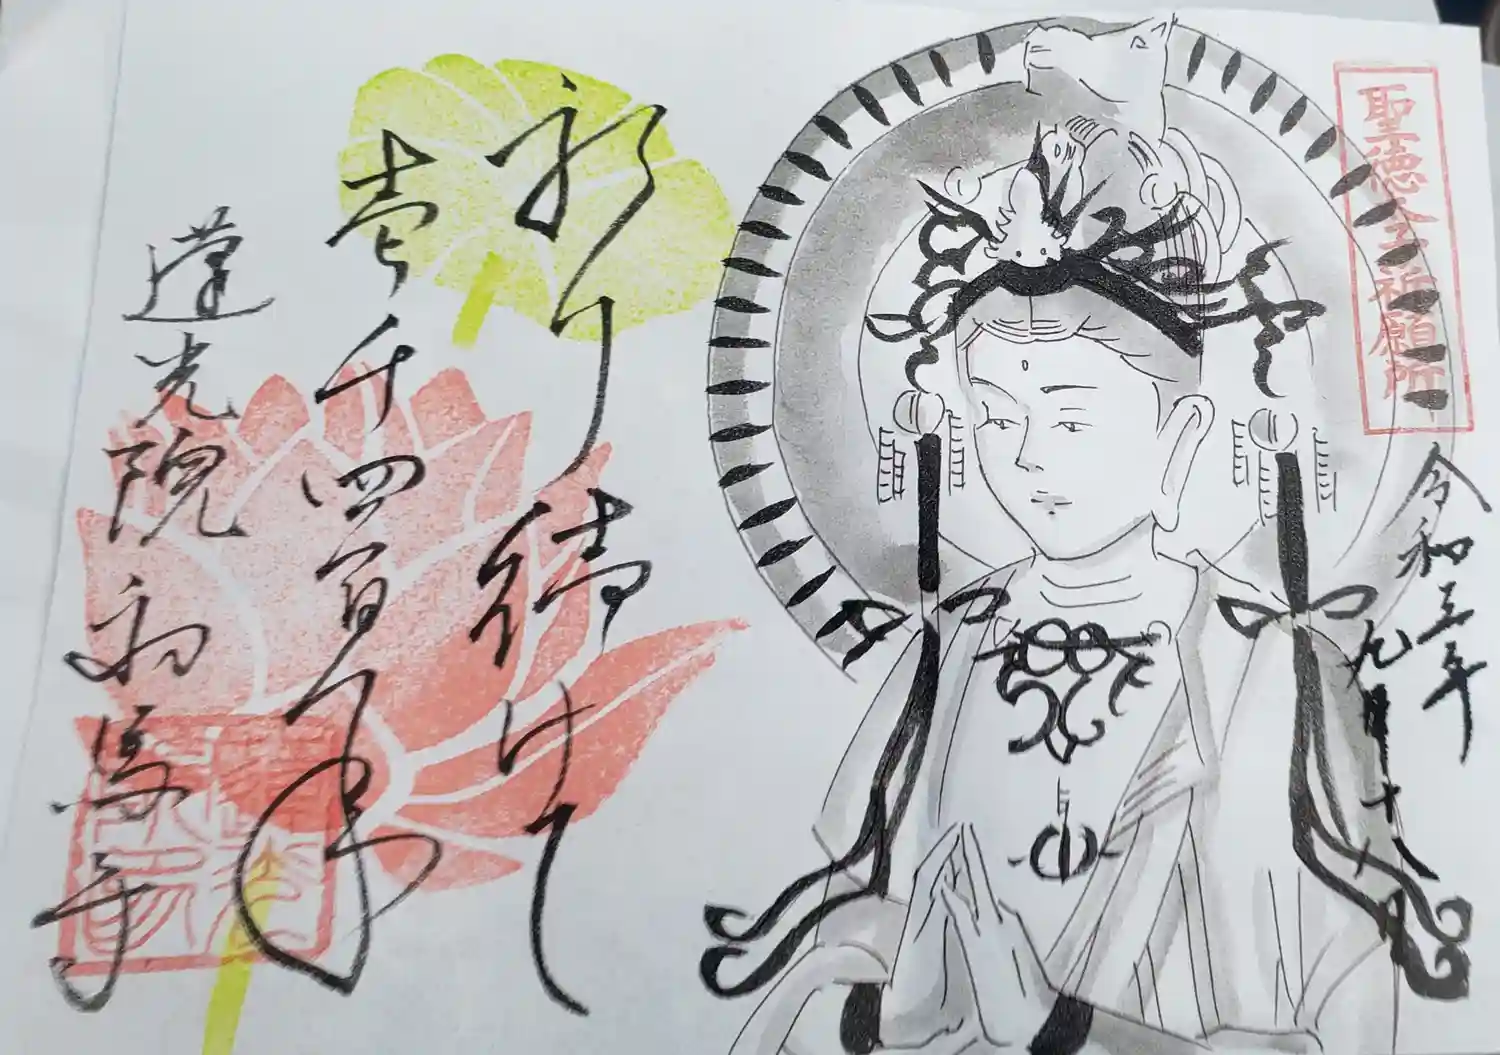 聖徳太子祈願所
令和三年
九月十八日
祈り続けて
壱千四百年
蓮光院初馬寺